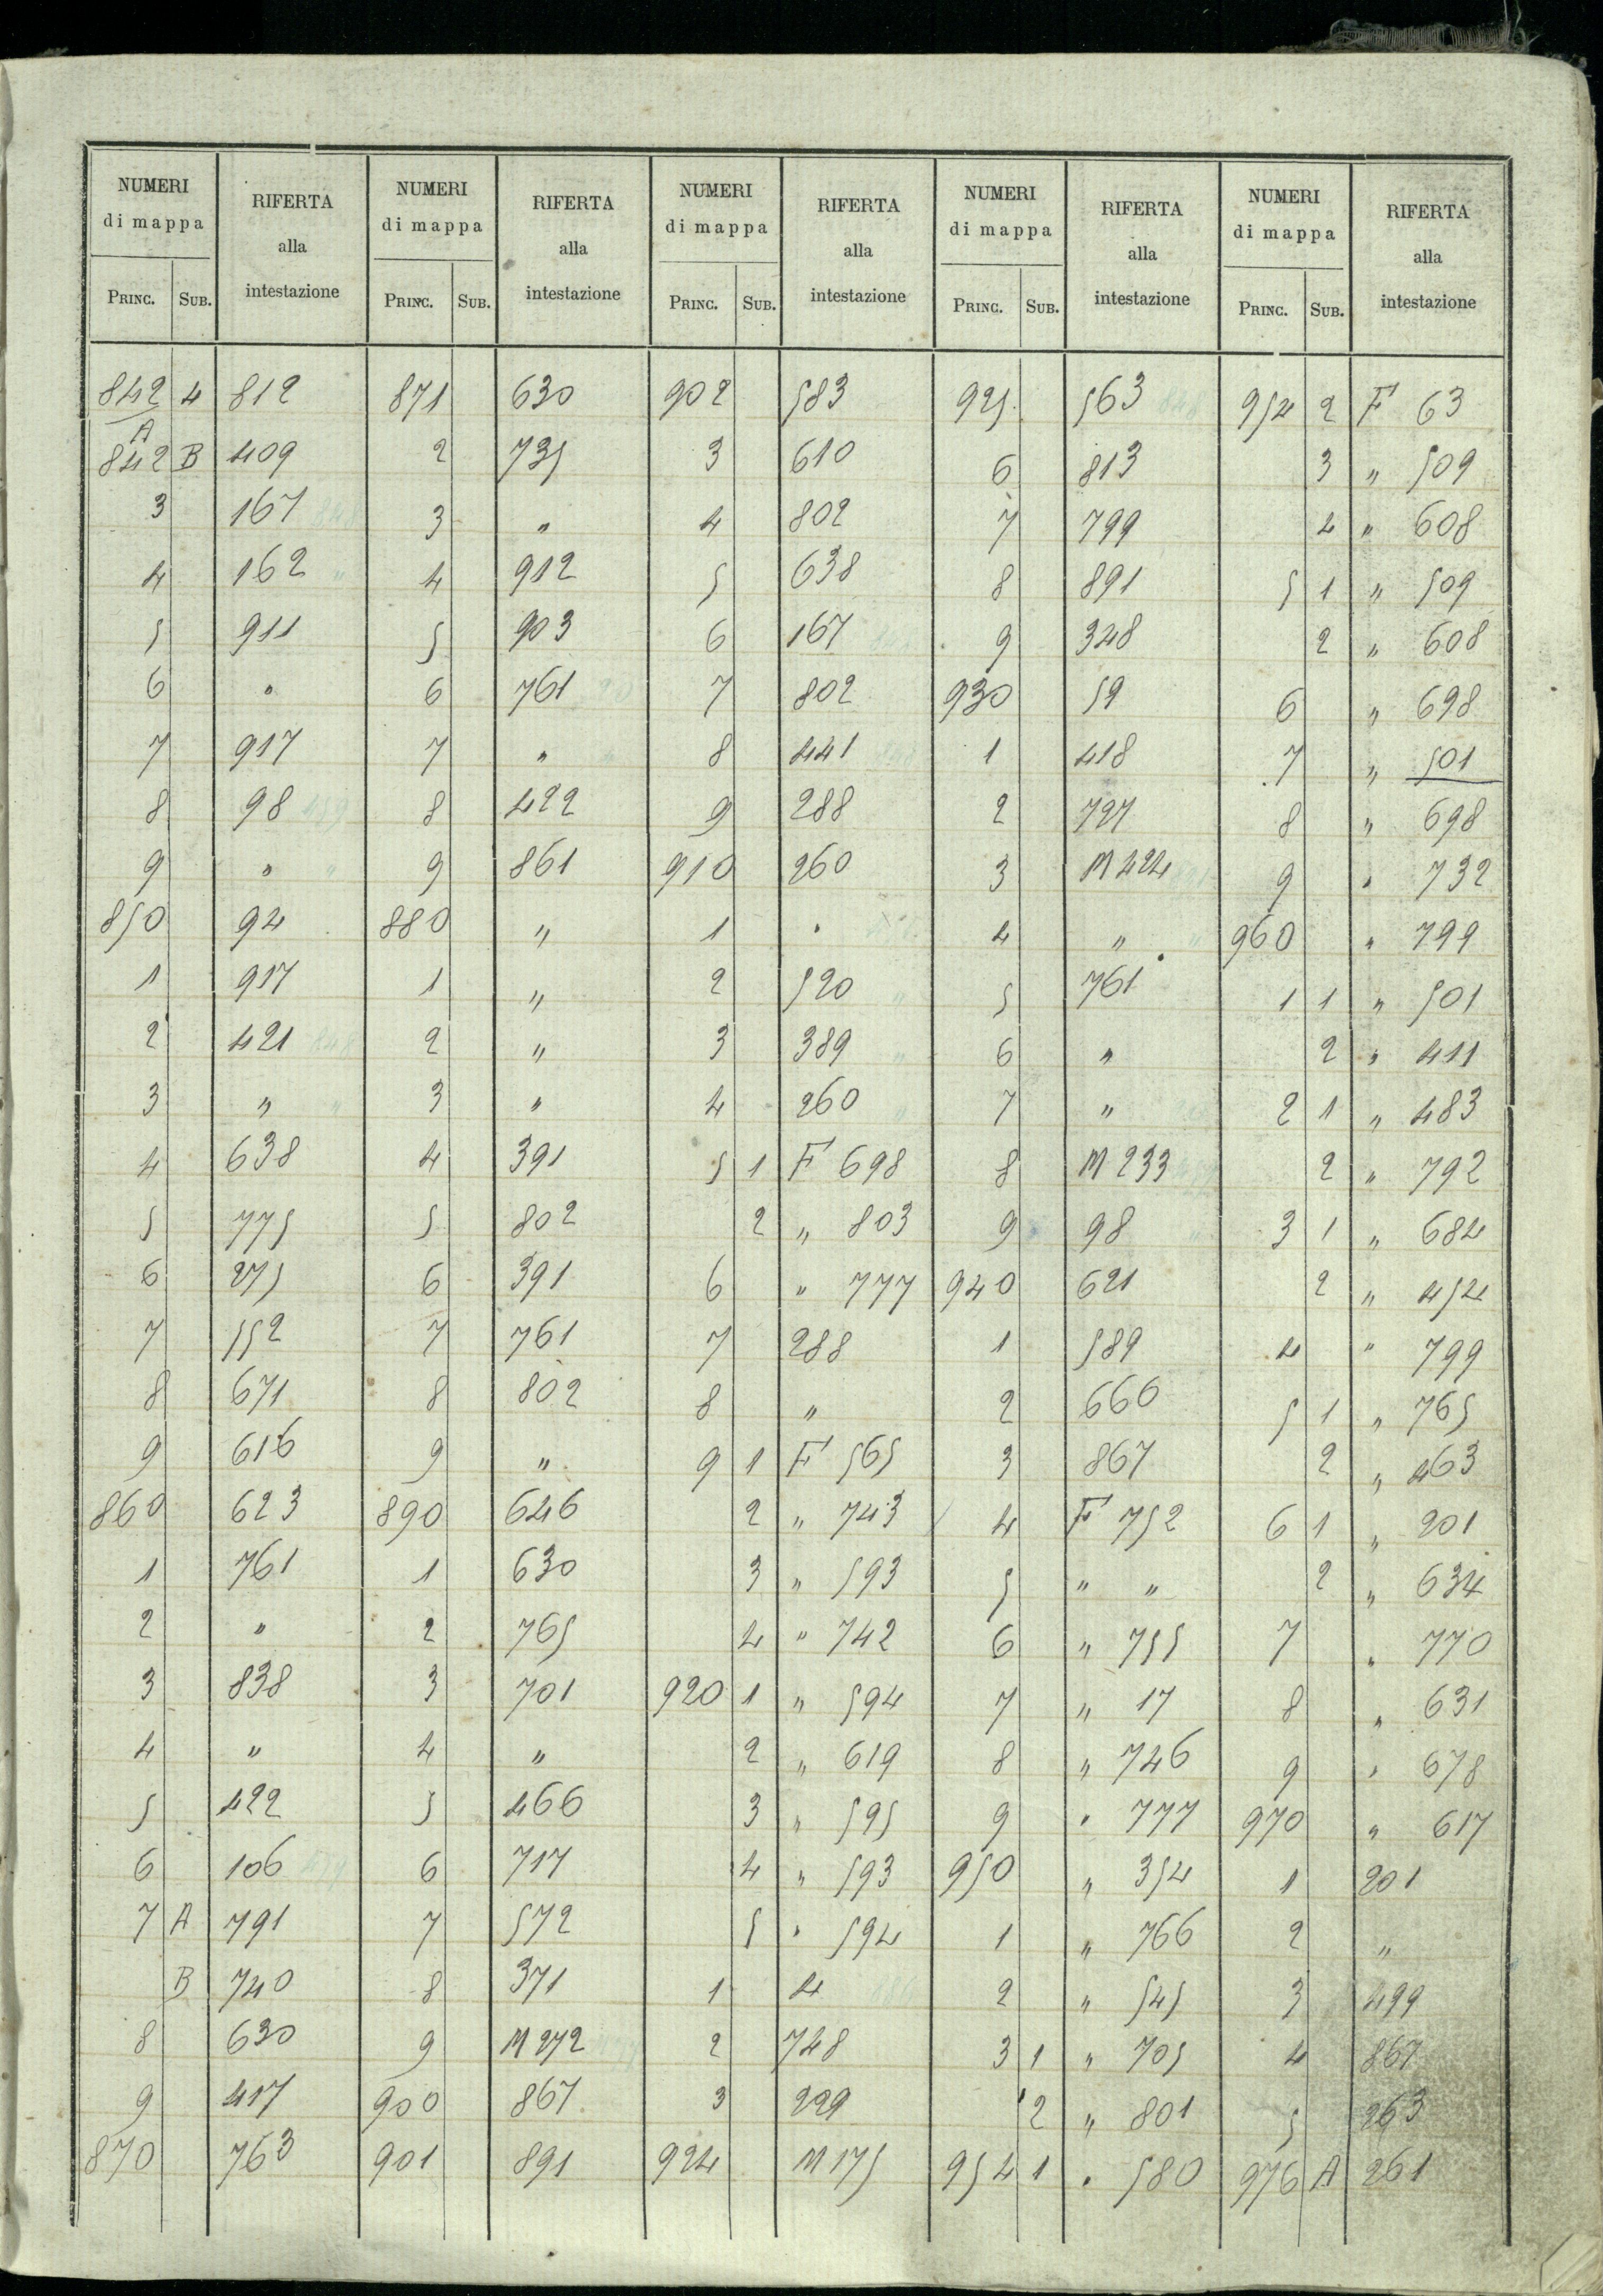 NUMERI di mappa | RIFERTA alla intestazione | NUMERI di mappa | RIFERTA alla intestazione | NUMERI di mappa | RIFERTA alla intestazione | NUMERI di mappa | RIFERTA alla intestazione | NUMERI di mappa | RIFERTA alla intestazione
PRINC. | SUB. | PRINC. | SUB. | PRINC. | SUB. | PRINC. | SUB. | PRINC. | SUB.
842 4 812 871 630 902 583 925 563 954 2 F 63
A
842 B 409 2 735 3 610 6 813 3 " 509
3 167 3 " 4 802 7 799 4 " 608
4 162 4 912 5 638 8 891 5 1 " 509
5 911 5 903 6 167 9 348 2 " 608
6 " 6 761 7 802 930 59 6 " 698
7 917 7 " 8 441 1 418 7 " 501
8 98 8 422 9 288 2 727 8 " 698
9 " 9 861 910 260 3 M 424 9 " 732
850 94 880 " 1 " 4 " 960 " 799
1 917 1 " 2 520 5 761 1 1 " 501
2 421 2 " 3 389 6 " 2 " 411
3 " 3 " 4 260 7 " 2 1 " 483
4 638 4 391 5 1 F 698 8 M 233 2 " 792
5 775 5 802 2 " 803 9 98 3 1 " 684
6 275 6 391 6 " 777 940 621 2 " 454
7 552 7 761 7 288 1 589 4 " 799
8 671 8 802 8 " 2 666 5 1 " 765
9 616 9 " 9 1 F 565 3 867 2 " 463
860 623 890 646 2 " 743 4 F 752 6 1 " 201
1 761 1 630 3 " 593 5 " " 2 " 634
2 " 2 765 4 " 742 6 " 755 7 " 770
3 838 3 701 920 1 " 594 7 " 17 8 " 631
4 " 4 " 2 " 619 8 " 746 9 " 678
5 422 5 466 3 " 595 9 " 777 970 " 617
6 106 6 717 4 " 593 950 " 354 1 201
7 A 791 7 572 5 " 594 1 " 766 2 "
B 740 8 371 1 4 2 " 545 3 499
8 630 9 M 272 2 748 3 1 " 705 4 867
9 417 900 867 3 299 2 " 801 5 263
870 763 901 891 924 M 175 954 1 " 580 976 A 261